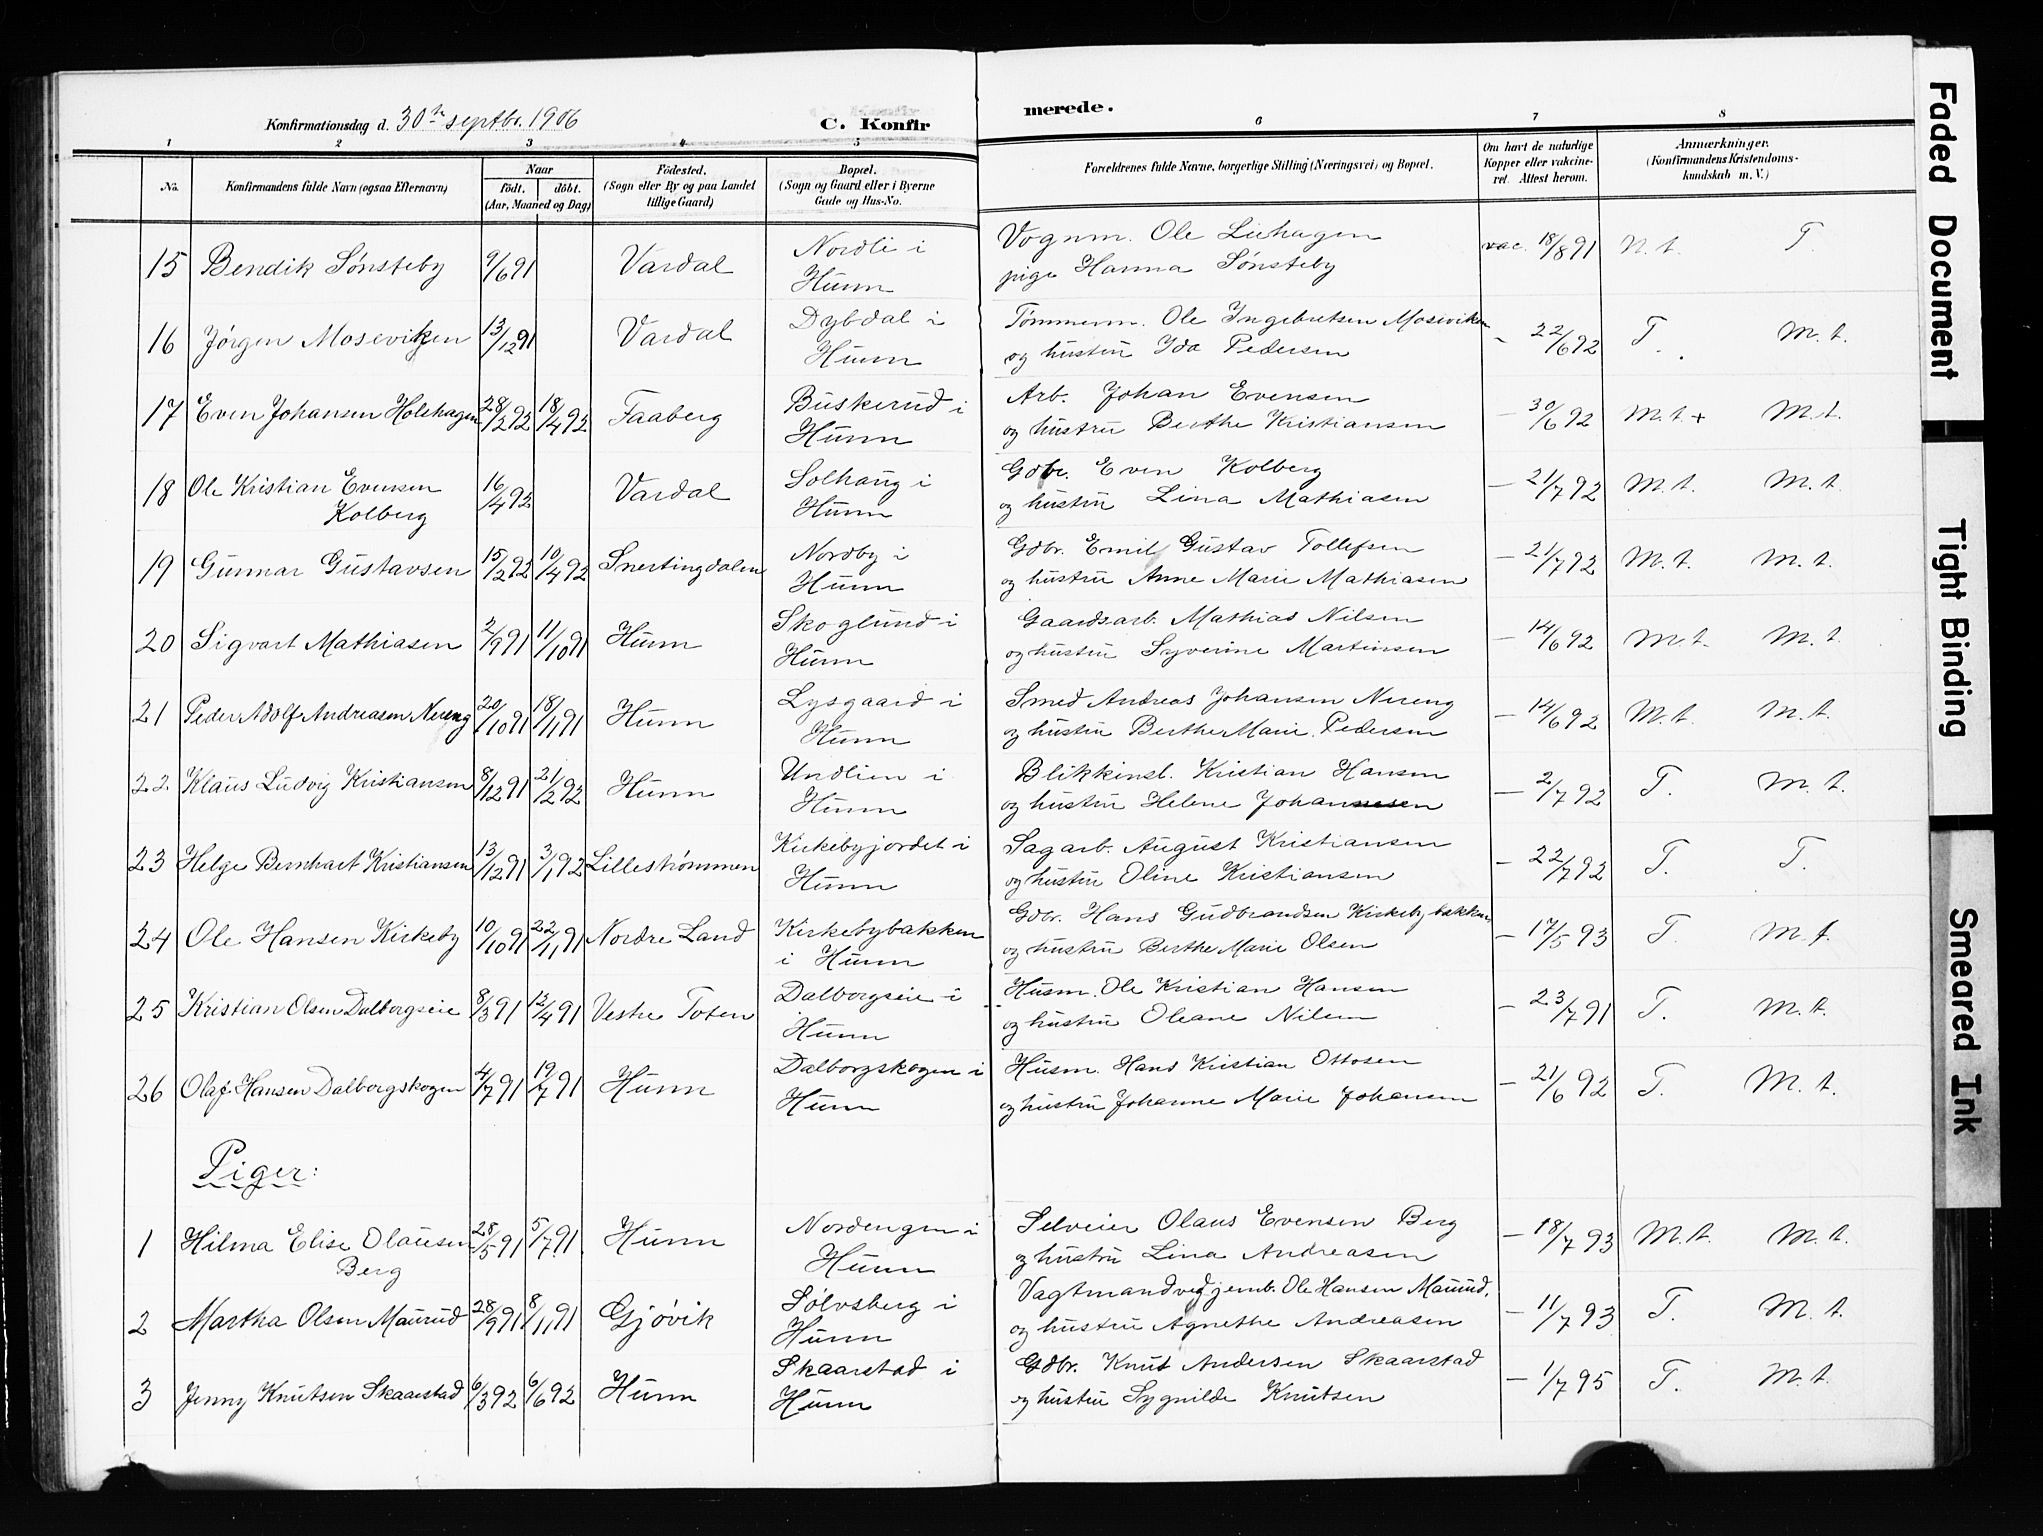 Konfirmationsdag d. 30te septbr. 1906
C. Konfirmerede.
1 2 3 4 5 6 7 8
No. | Konfirmandens fulde Navn (ogsaa Efternavn) | Naar födt. döbt. (Aar, Maaned og Dag) | Födested. (Sogn eller By og paa Landet tillige Gaard) | Bopæl. (Sogn og Gaard eller i Byerne Gade og Hus-No. | Forældrenes fulde Navne, borgerlige Stilling (Næringsvei) og Bopæl. | Om havt de naturlige Kopper eller vakcineret. Attest herom. | Anmærkninger. (Konfirmandens Kristendomskundskab m. V.)
15 Bendik Sønsteby 9/6 91 Vardal Nordli i Hunn Vognm. Ole Liehagen
pige Hanna Sønsteby vac. 18/8 91 N. t. T.
16 Jørgen Moseviken 13/12 91 Vardal Dybdal i Hunn Tømmerm. Ole Ingebretsen Moseviken
og hustru Ida Pedersen - 22/6 92 T. M. t.
17 Even Johansen Holehagen 28/2 92 18/4 92 Faaberg Buskerud i Hunn Arb. Johan Evensen
og hustru Berthe Kristiansen - 30/6 92 M. t. + M. t.
18 Ole Kristian Evensen Kolberg 16/4 92 Vardal Solhaug i Hunn Gdbr. Even Kolberg
og hustru Lina Mathiasen - 21/7 92 M. t. M. t.
19 Gunnar Gustavsen 15/2 92 10/4 92 Snertingdalen Nordby i Hunn Gdbr. Emil Gustav Tollefsen
og hustru Anne Marie Mathiasen - 21/7 92 M. t. M. t.
20 Sigvart Mathiasen 2/9 91 11/10 91 Hunn Skoglund i Hunn Gaardsarb. Mathias Nilsen
og hustru Syverine Martinsen - 14/6 92 M. t. M. t.
21 Peder Adolf Andreasen Nereng 20/10 91 18/1 91 Hunn Lysgaard i Hunn Smed Andreas Johansen Nereng
og hustru Berthe Marie Pedersen - 14/6 92 M. t. M. t.
22. Klaus Ludvig Kristiansen 8/12 91 21/2 92 Hunn Undlien i Hunn Blikkensl. Kristian Hansen
og hustru Helene Johannesen - 2/7 92 T. M. t.
23 Helge Bernhart Kristiansen 13/12 91 3/1 92 Lillestrømmen Kirkebyjordet i Hunn Sagarb. August Kristiansen
og hustru Oline Kristiansen - 22/7 92 T. T.
24 Ole Hansen Kirkeby 10/10 91 22/1 91 Nordre Land Kirkebybakken i Hunn Gdbr. Hans Gudbrandsen Kirkebybakken
og hustru Berthe Marie Olsen - 17/5 93 T. M. t.
25 Kristian Olsen Dalborgseie 8/3 91 12/4 91 Vestre Toten Dalborgseie i Hunn Husm. Ole Kristian Hansen
og hustru Oleane Nilsen - 23/7 91 T. M. t.
26 Olaf Hansen Dalborgskogen 4/7 91 19/7 91 Hunn Dalborgskogen i Hunn Husm. Hans Kristian Ottosen
og hustru Johanne Marie Johansen - 21/6 92 T. M. t.
Piger:
1 Hilma Elise Olausen Berg 28/5 91 5/7 91 Hunn Nordengen i Hunn Selveier Olaus Evensen Berg
og hustru Lina Andreasen - 18/7 93 M. t. M. t.
2 Martha Olsen Maurud 28/9 91 8/1 91 Gjøvik Sølvsberg i Hunn Vagtmand ved jernb. Ole Hansen Maurud,
og hustru Agnethe Andreasen - 11/7 93 T. M. t.
3 Jenny Knutsen Skaarstad 6/3 92 6/6 92 Hunn Skaarstad i Hunn Gdbr. Knut Andersen Skaarstad
og hustru Sygnilde Knutsen - 1/7 95 T. M. t.
Faded Document
Tight Binding
Smeared Ink